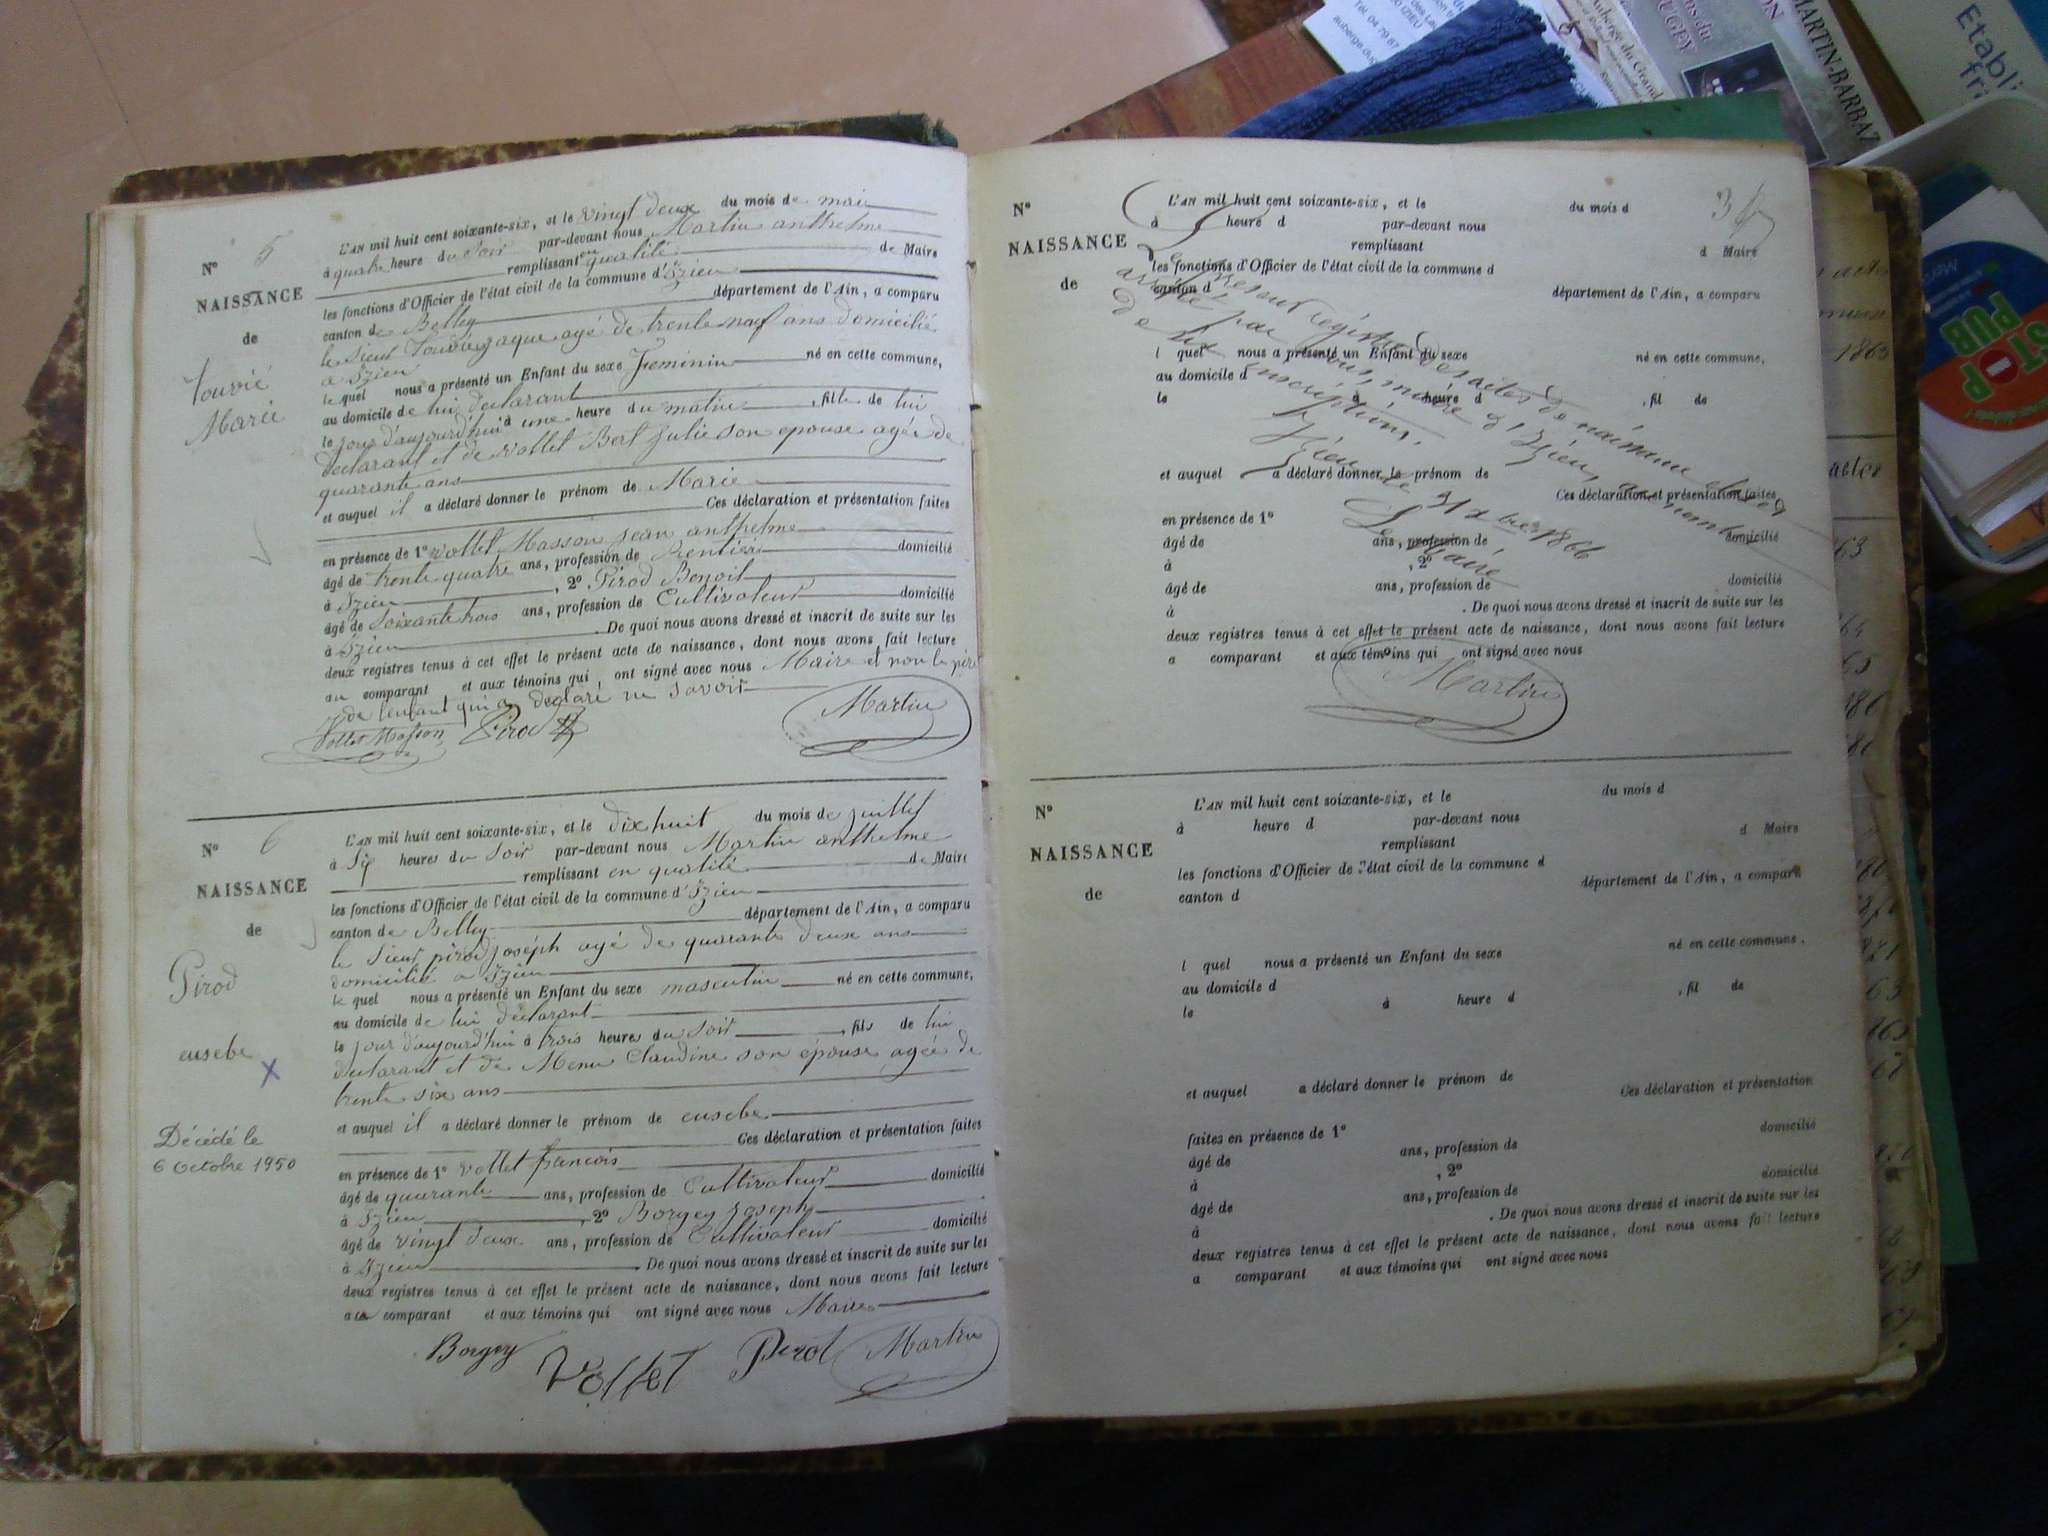 N° 5
NAISSANCE
de
Touvié
Marie
L'AN mil huit cent soixante-six, et le vingt deux du mois de mai
à quatre heure du soir par-devant nous Martin anthelme
remplissant en qualité de Maire
les fonctions d'Officier de l'état civil de la commune d'Izieu
canton de Belley département de l'Ain, a comparu
le sieur Touvié jaque agé de trente neuf ans domicilié
a Izieu
le quel nous a présenté un Enfant du sexe Feminin né en cette commune,
au domicile de lui déclarant
le jour d'aujourd'hui à une heure du matin, fille de lui
declarant et de vollet Bert Julie son epouse agée de
quarante ans
et auquel il a déclaré donner le prénom de Marie
Ces déclaration et présentation faites
en présence de 1° vollet Masson jean anthelme
âgé de trente quatre ans, profession de Rentier domicilié
à Izieu, 2° Pirod Benoit
âgé de soixante trois ans, profession de Cultivateur domicilié
à Izieu. De quoi nous avons dressé et inscrit de suite sur les
deux registres tenus à cet effet le présent acte de naissance, dont nous avons fait lecture
au comparant et aux témoins qui, ont signé avec nous Maire et non le père
de l'enfant qui a declaré ne savoir
Vollet Masson Pirod Martin
N° 6
NAISSANCE
de
Pirod
eusebe
X
Décédé le
6 Octobre 1950
L'AN mil huit cent soixante-six, et le dix huit du mois de juillet
à Six heures du soir par-devant nous Martin anthelme
remplissant en qualité de Maire
les fonctions d'Officier de l'état civil de la commune d'Izieu
canton de Belley département de l'Ain, a comparu
le sieur pirod joséph agé de quarante deux ans
domicilié a Izieu
le quel nous a présenté un Enfant du sexe masculin né en cette commune,
au domicile de lui déclarant
le jour d'aujourd'hui à trois heures du soir, fils de lui
declarant et de Menu Claudine son épouse agée de
trente six ans
et auquel il a déclaré donner le prénom de eusebe
Ces déclaration et présentation faites
en présence de 1° vollet francois
âgé de quarante ans, profession de Cultivateur domicilié
à Izieu, 2° Borgey Joseph
âgé de vingt deux ans, profession de Cultivateur domicilié
à Izieu. De quoi nous avons dressé et inscrit de suite sur les
deux registres tenus à cet effet le présent acte de naissance, dont nous avons fait lecture
au comparant et aux témoins qui ont signé avec nous Maire
Borgey Vollet Pirod Martin
N°
NAISSANCE
de
L'AN mil huit cent soixante-six, et le du mois d
à heure d par-devant nous
remplissant d Maire
les fonctions d'Officier de l'état civil de la commune d
canton d département de l'Ain, a comparu
l quel nous a présenté un Enfant du sexe né en cette commune,
au domicile d
le à heure d, fil de
et auquel a déclaré donner le prénom de
Ces déclaration et présentation faites
en présence de 1°
âgé de ans, profession de domicilié
à, 2°
âgé de ans, profession de domicilié
à. De quoi nous avons dressé et inscrit de suite sur les
deux registres tenus à cet effet le présent acte de naissance, dont nous avons fait lecture
a comparant et aux témoins qui ont signé avec nous
Le present registre des actes de naissance
arrêté par nous, maire d'Izieu, au nombre
de Six inscriptions.
Izieu le 31 xbre 1866
Le maire
Martin
N°
NAISSANCE
de
L'AN mil huit cent soixante-six, et le du mois d
à heure d par-devant nous
remplissant d Maire
les fonctions d'Officier de l'état civil de la commune d
canton d département de l'Ain, a comparu
l quel nous a présenté un Enfant du sexe né en cette commune,
au domicile d
le à heure d, fil de
et auquel a déclaré donner le prénom de
Ces déclaration et présentation
faites en présence de 1°
âgé de ans, profession de domicilié
à, 2°
âgé de ans, profession de domicilié
à. De quoi nous avons dressé et inscrit de suite sur les
deux registres tenus à cet effet le présent acte de naissance, dont nous avons fait lecture
a comparant et aux témoins qui ont signé avec nous
Auberge du Grand
MARTIN-BARBAZ
STOP
PUB